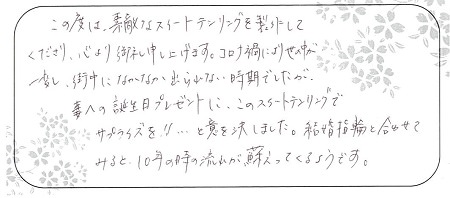 この度は、素敵なスイートテンリングを製作して
くださり、心より御礼申し上げます。コロナ禍により世の中が
一変し、街中になかなか出られない時期でしたが、
妻への誕生日プレゼントに、このスイートテンリングで
サプライズを!!…と意を決しました。結婚指輪と合わせて
みると、10年の時の流れが蘇えってくるようです。